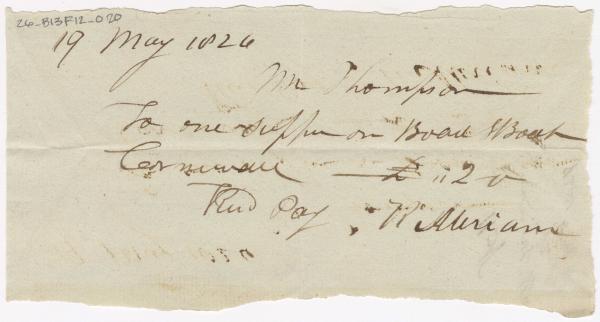 26-B13F12-020
19 May 1824
Mr Thompson
To one supper on Board S Boat
Cornwall £ " 2 0
Recd Pay R Meriam